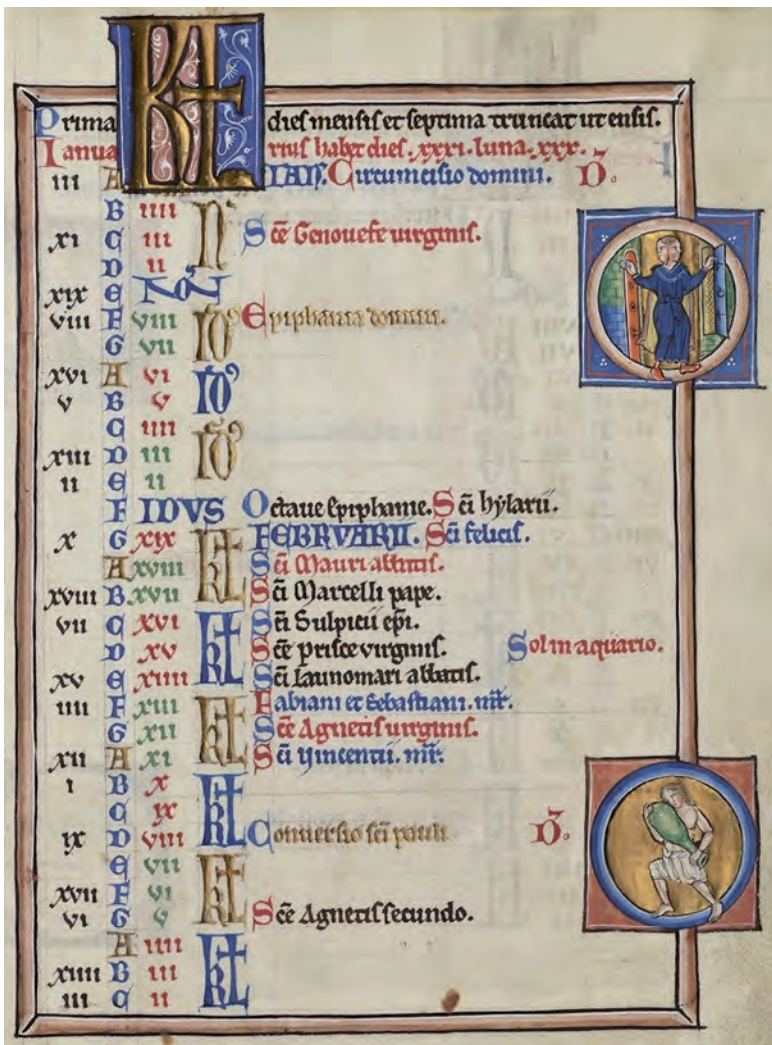 KL
Prima dies mensis et septima truncat ut ensis.
Ianuarius habet dies .xxxi. luna .xxx.
iii A IAN̄. Circumcisio domini. D̄.
B iiii N̄
xi C iii Sc̄e Genouefe uirginis.
D ii
xix E NON̄
viii F viii ID' Epiphania domini.
G vii
xvi A vi ID'
v B v
C iiii ID'
xiii D iii
ii E ii
F IDVS Octaue Epiphanie. Sc̄i hylarii.
x G xix kł FEBRVARII. Sc̄i felicis.
A xviii Sc̄i Mauri abbatis.
xviii B xvii Sc̄i Marcelli pape.
vii C xvi kł Sc̄i Sulpicii ep̄i.
D xv Sc̄e prisce virginis. Sol in aquario.
xv E xiiii Sc̄i Launomari abbatis.
iiii F xiii kł Fabiani et Sebastiani. mr̄.
G xii Sc̄e Agnetis uirginis.
xii A xi Sc̄i Vincentii. mr̄.
i B x kł
C ix
ix D viii Conuersio sc̄i pauli D̄.
E vii kł
xvii F vi
vi G v Sc̄e Agnetis secundo.
A iiii kł
xiiii B iii
iii C ii